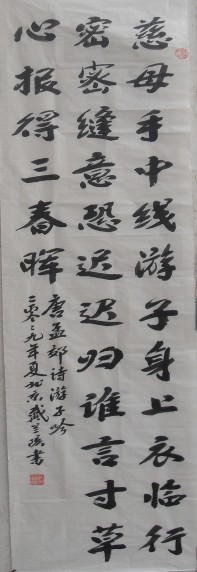 慈母手中线游子身上衣临行
密密缝意恐迟迟归谁言寸草
心报得三春晖
唐孟郊诗游子吟
二零一九年夏于北京戴兰英书